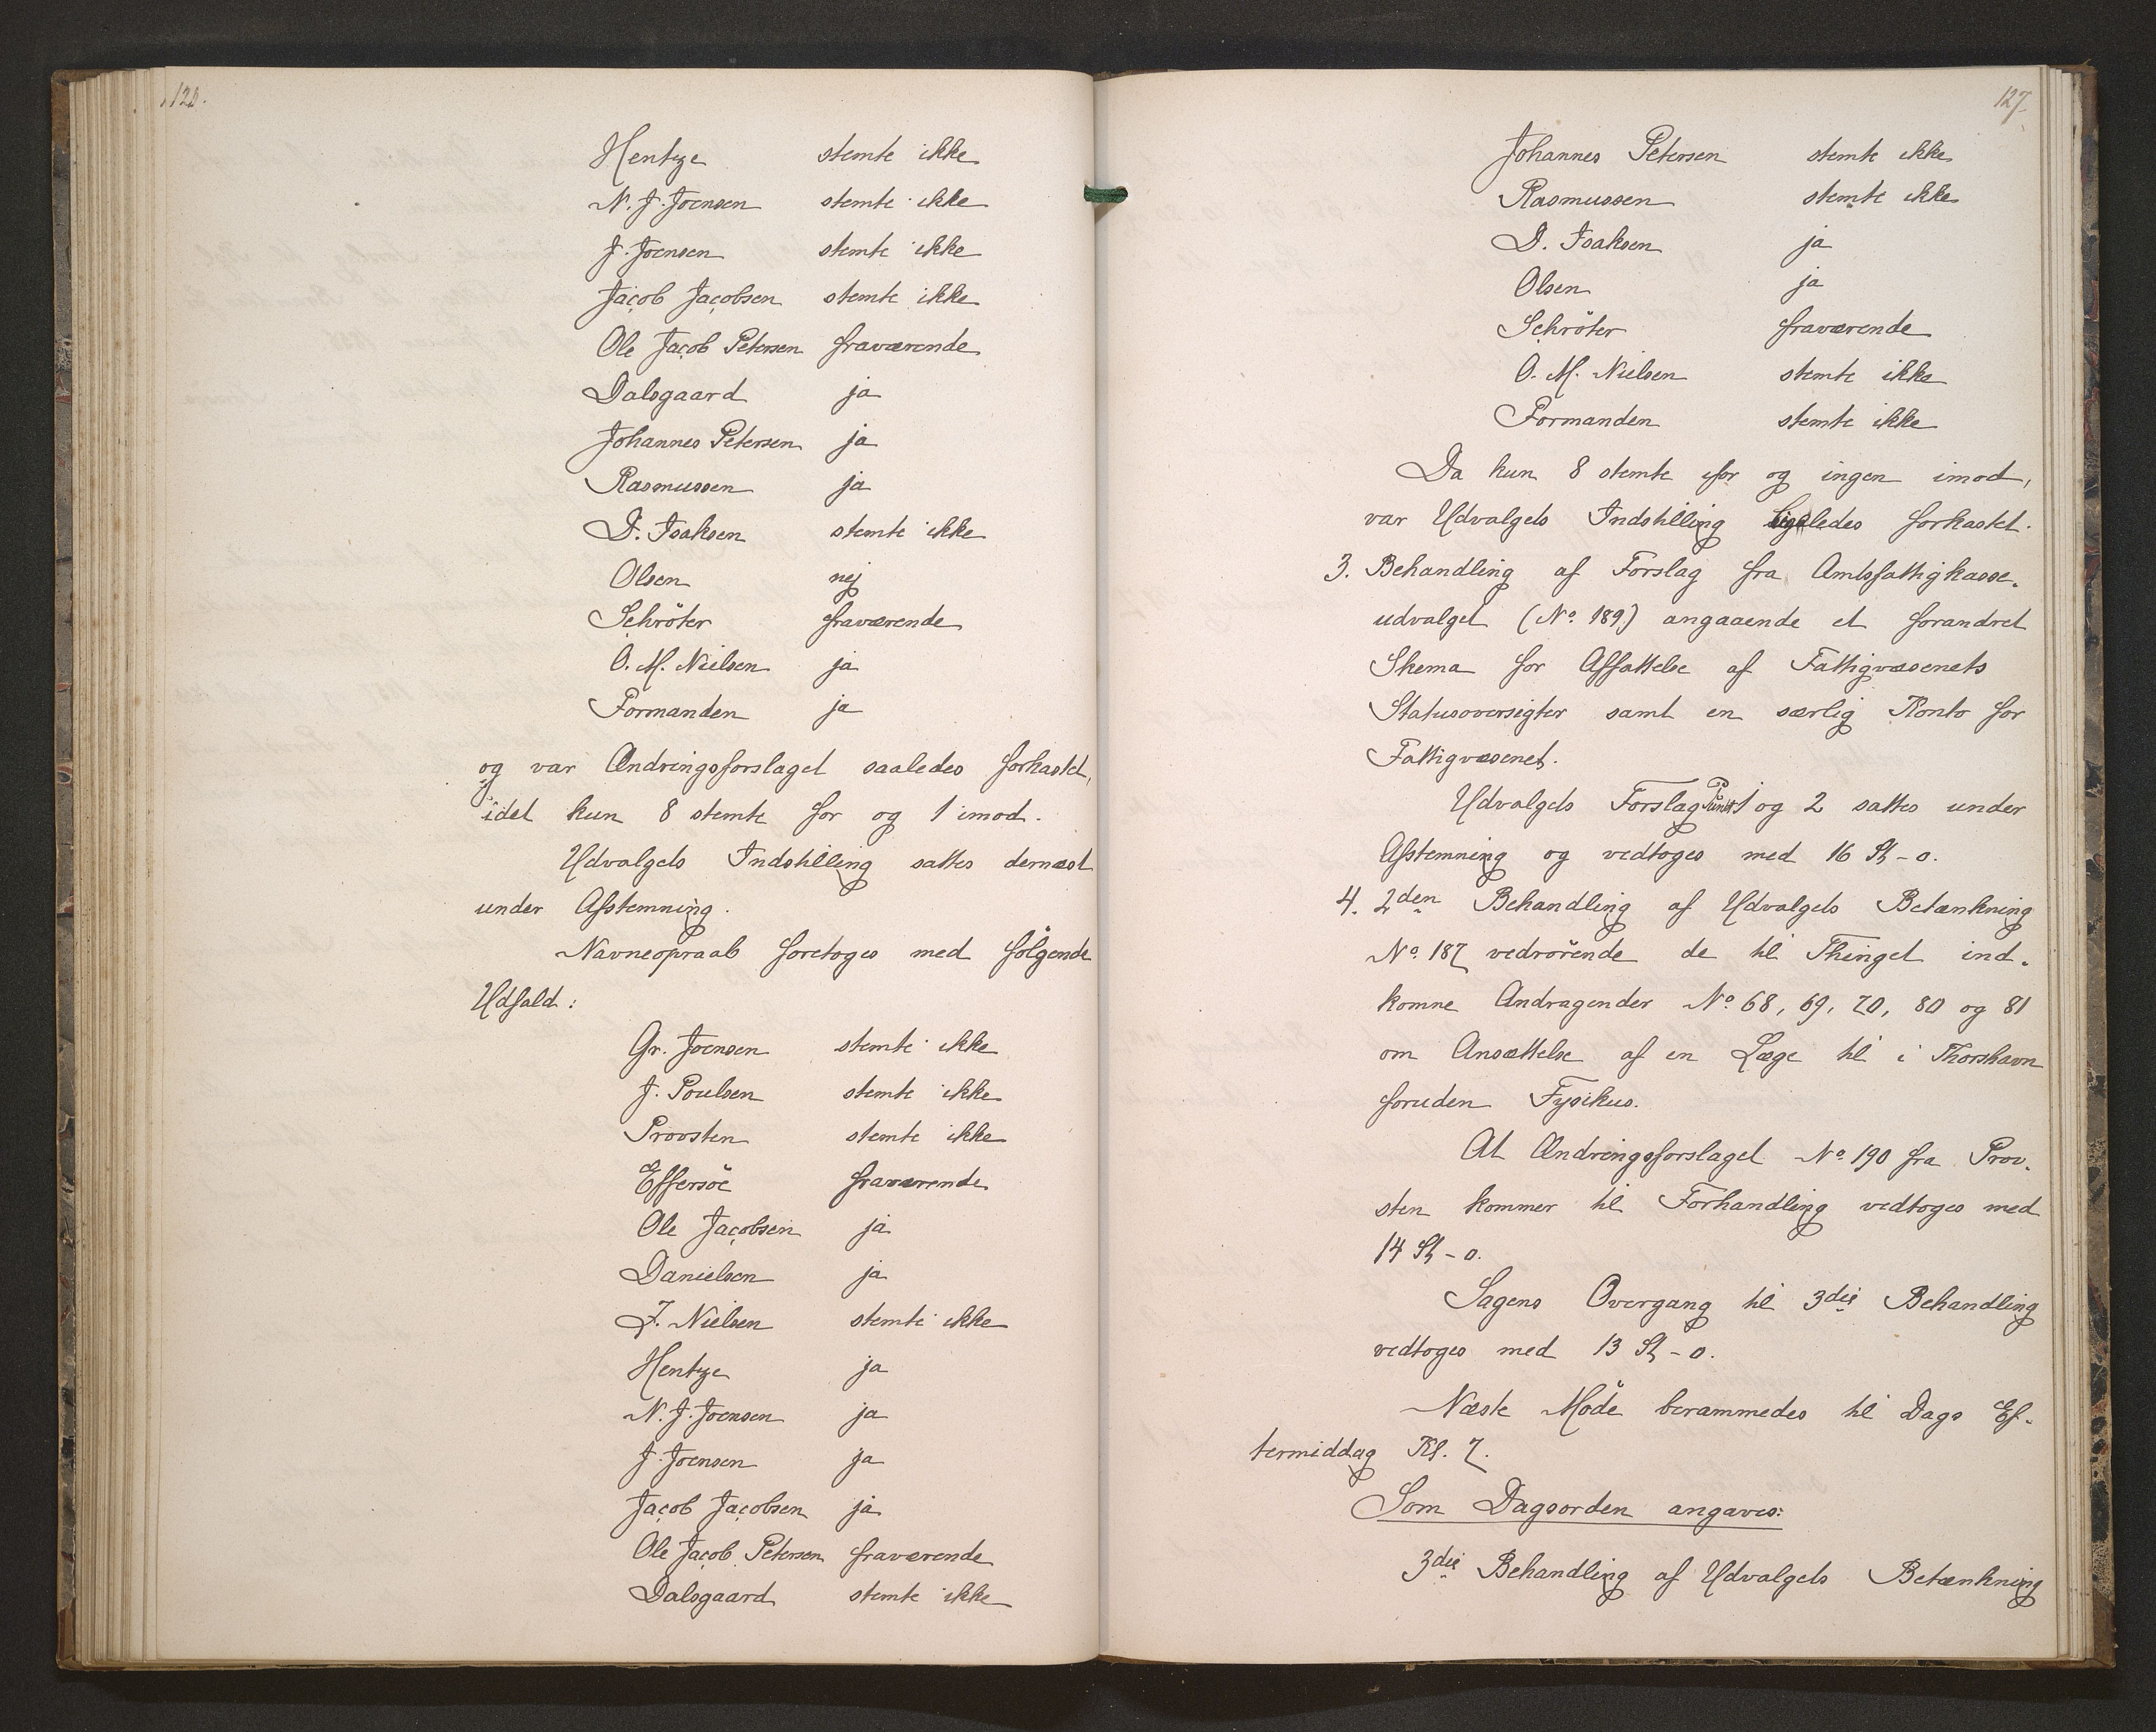 126.
Hentze stemte ikke
N. J. Joensen stemte ikke
J. Joensen stemte ikke
Jacob Jacobsen stemte ikke
Ole Jacob Petersen fraværende
Dalsgaard ja
Johannes Petersen ja
Rasmussen ja
D. Isaksen stemte ikke
Olsen nej
Schröter fraværende
O. M. Nielsen ja
Formanden ja
og var Ændringsforslaget saaledes forkastet,
idet kun 8 stemte for og 1 imod.
Udvalgets Indstilling sattes dernæst
under Afstemning.
Navneopraab foretoges med følgende
Udfald:
Gr. Joensen stemte ikke
J. Poulsen stemte ikke
Provsten stemte ikke
Effersöe fraværende
Ole Jacobsen ja
Danielsen ja
J. Nielsen stemte ikke
Hentze ja
N. J. Joensen ja
J. Joensen ja
Jacob Jacobsen ja
Ole Jacob Petersen fraværende
Dalsgaard stemte ikke
127.
Johannes Petersen stemte ikke
Rasmussen stemte ikke
D. Isaksen ja
Olsen ja
Schröter fraværende
O. M. Nielsen stemte ikke
Formanden stemte ikke
Da kun 8 stemte for og ingen imod,
var Udvalgets Indstilling ligeledes forkastet.
3. Behandling af Forslag fra Amtsfattigkasse-
udvalget (No. 189) angaaende et forandret
Skema for Affattelse af Fattigvæsenets
Statusoversigter samt en særlig Konto for
Fattigvæsenet.
Udvalgets Forslag Punkt 1 og 2 sattes under
Afstemning og vedtoges med 16 St - 0.
4. 2den Behandling af Udvalgets Betænkning
No. 187 vedrørende de til Thinget ind-
komne Andragender No 68, 69, 70, 80 og 81
om Ansættelse af en Læge til i Thorshavn
foruden Fysikus.
At Ændringsforslaget No 190 fra Prov-
sten kommer til Forhandling vedtoges med
14 St - 0.
Sagens Overgang til 3die Behandling
vedtoges med 13 St - 0.
Næste Møde berammedes til Dags Ef-
termiddag Kl. 7.
Som Dagsorden angaves:
3die Behandling af Udvalgets Betænkning